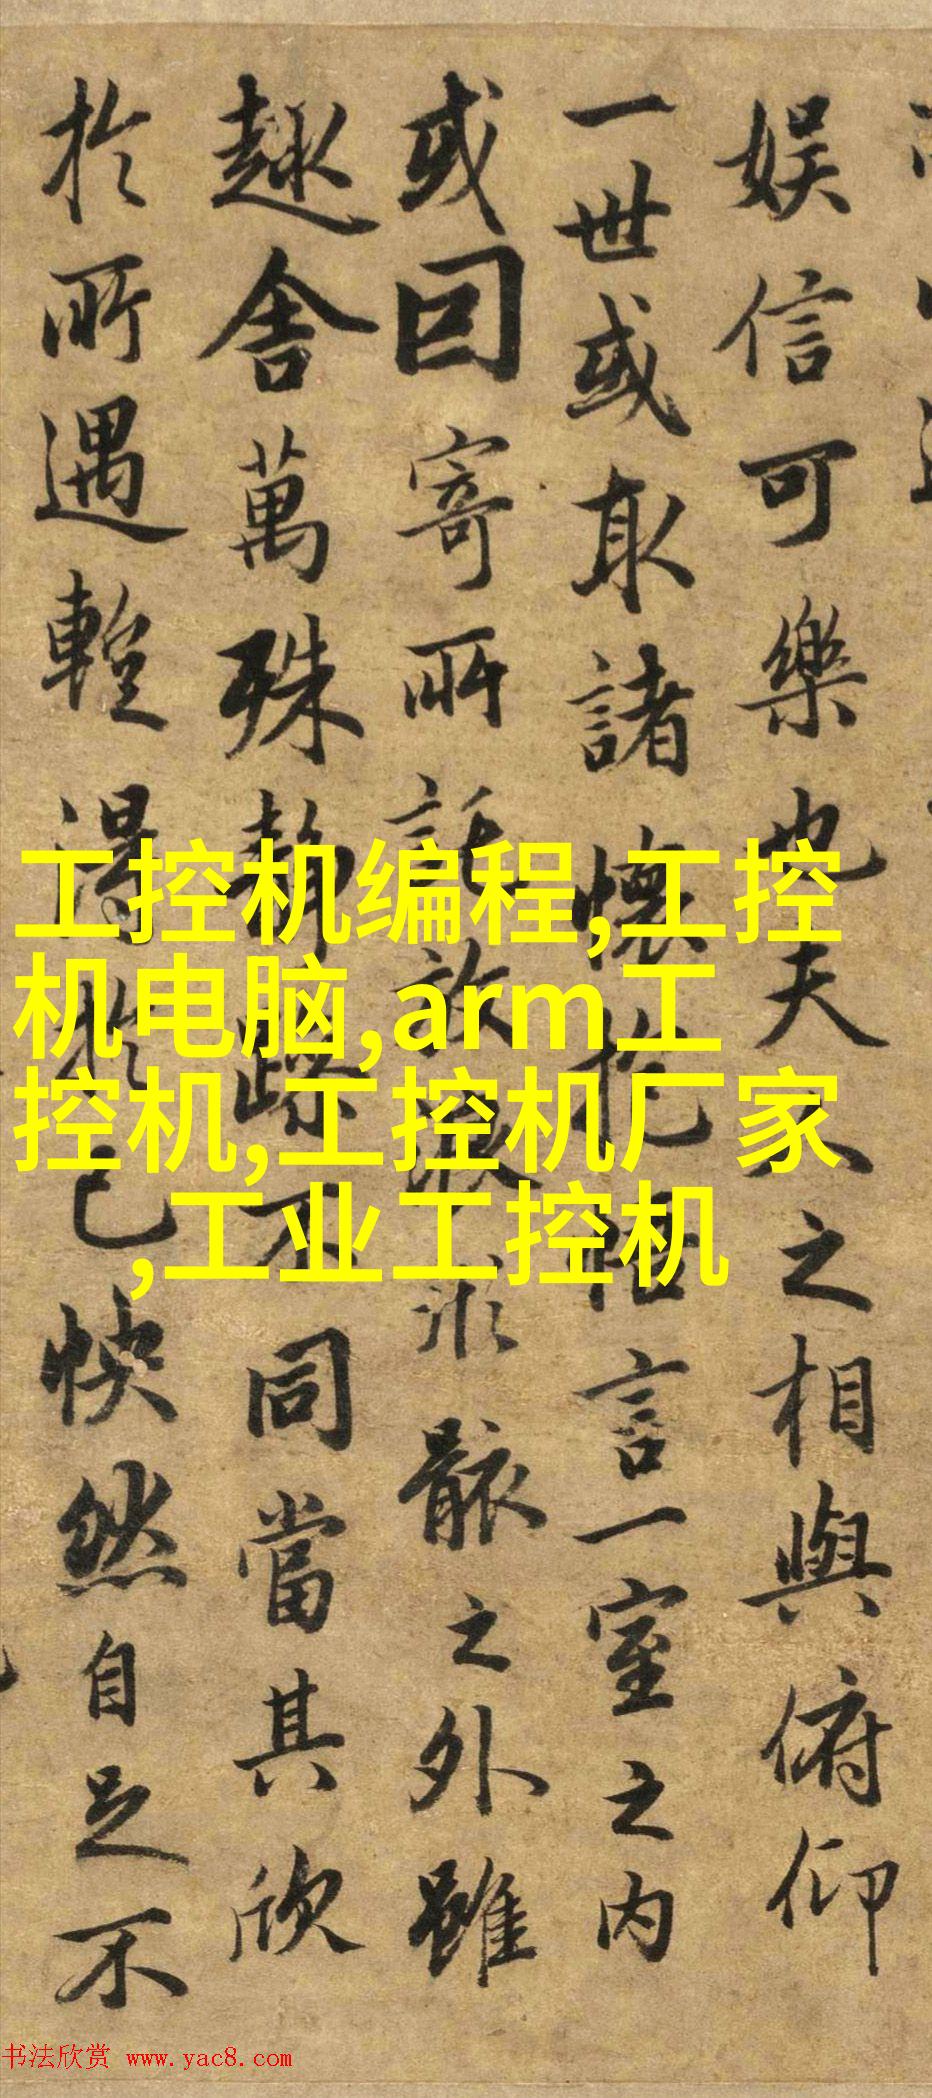 娛信可樂也夫人之相與俯仰
一世或取諸懷抱悟言一室之内
或因寄所託放浪形骸之外雖
趣舍萬殊静躁不同當其欣
於所遇暫得於己快然自足不
工控机编程,工控
机电脑,arm工
控机,工控机厂家
,工业工控机
书法欣赏 www.yac8.com